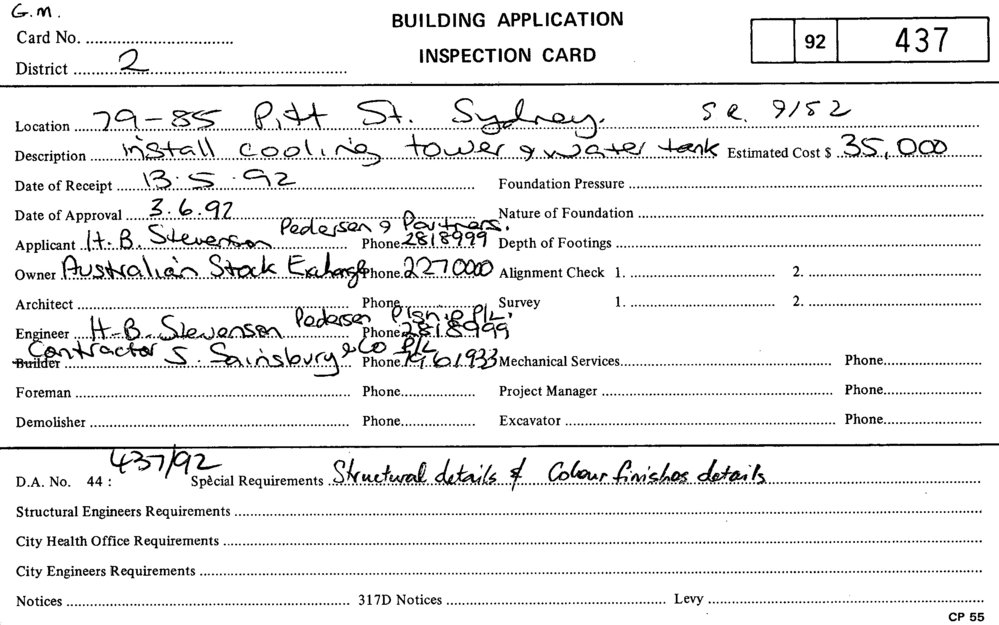 G.M.
Card No.
BUILDING APPLICATION
INSPECTION CARD
92 437
District 2
Location 79-85 Pitt St. Sydney. S R. 9/52
Description install cooling tower & water tank Estimated Cost $ 35,000
Date of Receipt 13.5.92 Foundation Pressure
Date of Approval 3.6.92 Nature of Foundation
Pedersen & Partners.
Applicant H. B. Stevenson Phone 2818999 Depth of Footings
Owner Australian Stock Exchange Phone 2270000 Alignment Check 1. 2.
Architect Phone Survey 1. 2.
Pedersen P/L.
Engineer H-B-Stevenson Phone 2818999
Contractor S. Sainsbury & Co P/L
Builder Phone Mechanical Services Phone
Foreman Phone Project Manager Phone
Demolisher Phone Excavator Phone
D.A. No. 44 : 437/92 Special Requirements Structural details & Colour finishes details
Structural Engineers Requirements
City Health Office Requirements
City Engineers Requirements
Notices 317D Notices Levy
CP 55